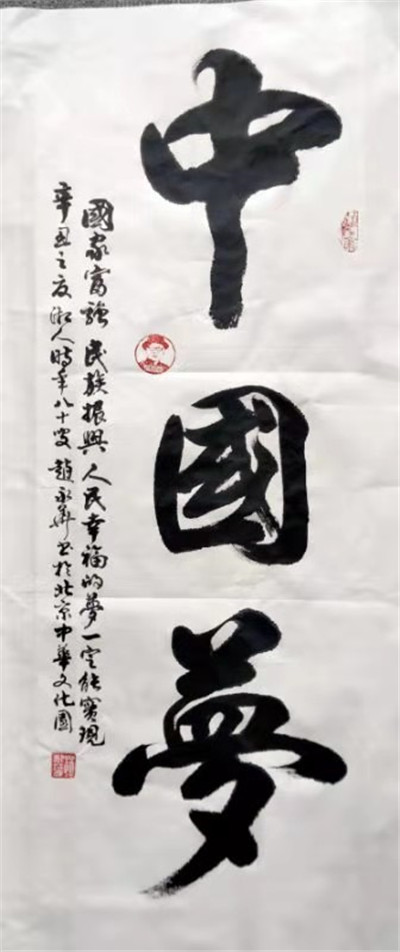 中國夢
國家富強 民族振興 人民幸福的夢一定能實現
辛丑之夏湘人時年八十叟趙永華書於北京中華文化園